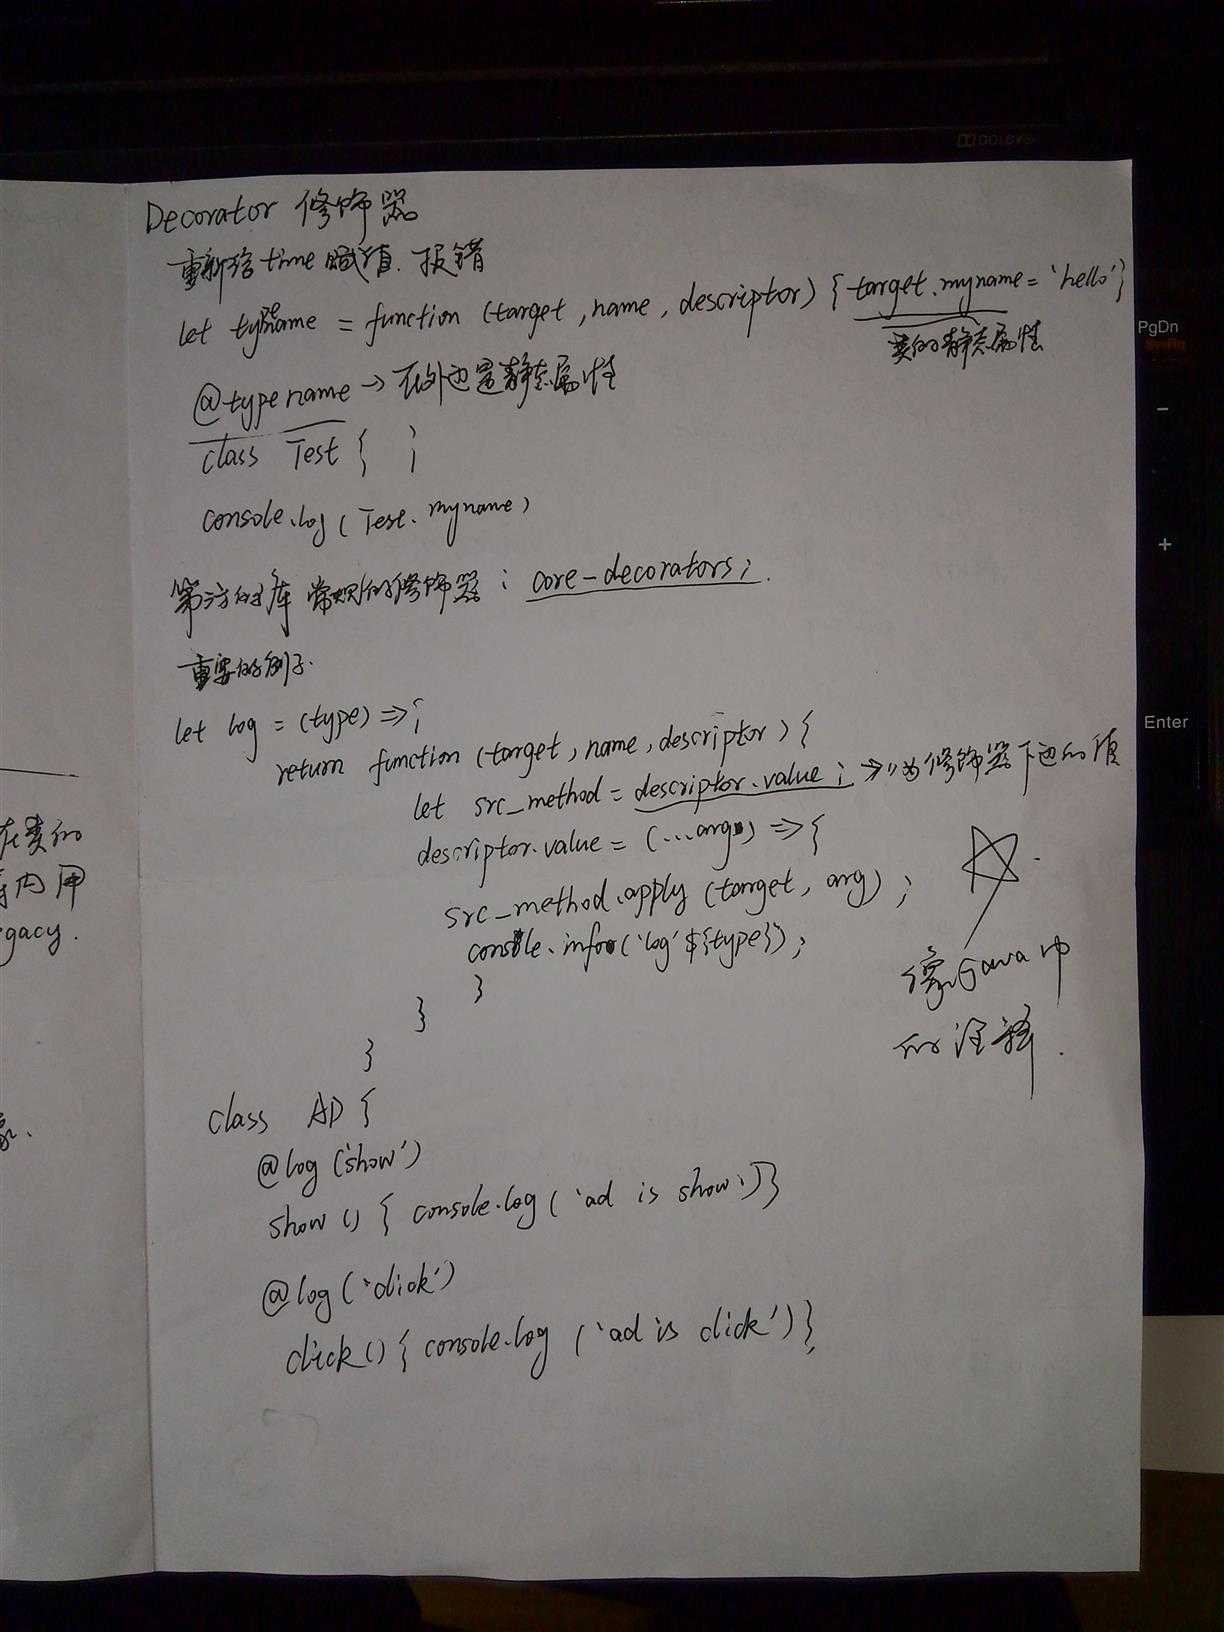 DOLBY
Decorator 修饰器
重新给time赋值. 报错
let typename = function (target, name, descriptor) { target.myname = 'hello' }
类的静态属性
@typename → 在外边是静态属性
class Test { }
console.log( Test. myname )
第三方的库 常规的修饰器 : core-decorators;
重要的例子.
let log = (type) => {
return function (target, name, descriptor) {
let src_method = descriptor.value ; → 为修饰器下边的值
descriptor.value = (...arg) => {
src_method.apply (target, arg) ;
console.info('log' ${type});
}
}
}
像Java中
的注释.
class AD {
@log ('show')
show () { console.log ( 'ad is show' ) }
@log ( 'click' )
click () { console.log ( 'ad is click' ) }
在类的
内用
gacy.
PgDn
SysRq
-
+
Enter